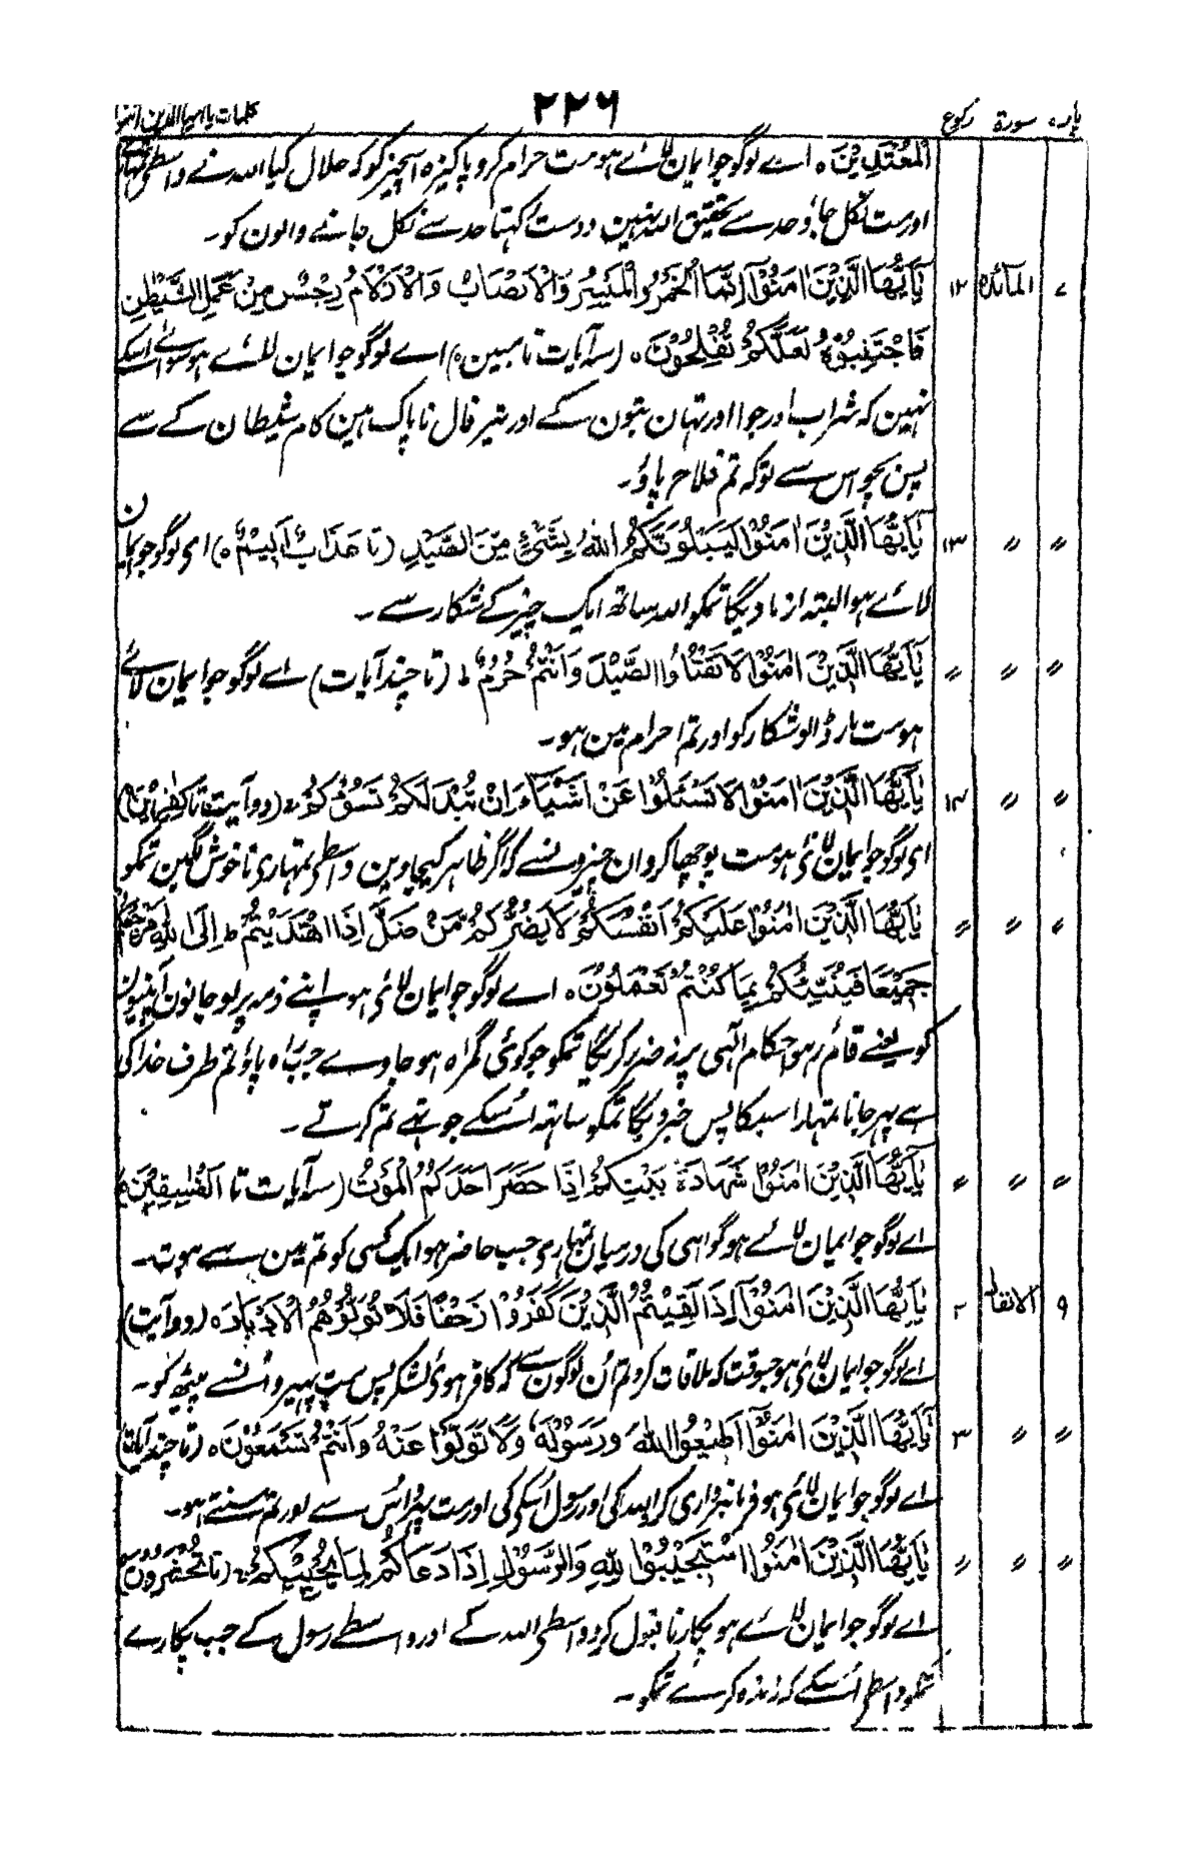 پارہ سورۃ رکوع ۲۲۶ کلمات یا ایہا الذین اٰمنوا
الْمُعْتَدِیْنَ ہ اے لوگو جو ایمان لائے ہو مت حرام کرو پاکیزہ اس چیز کو کہ حلال کیا اللہ نے واسطی تمہارے
اور مت نکل جاؤ حد سے تحقیق اللہ نہین دوست کہتا حد سے نکل جانے والون کو۔
۷ المائدہ ۱۲ یٰٓاَیُّهَا الَّذِیْنَ اٰمَنُوْٓا اِنَّمَا الْخَمْرُ وَالْمَیْسِرُ وَالْاَنْصَابُ وَالْاَزْلَامُ رِجْسٌ مِنْ عَمَلِ الشَّیْطٰنِ
فَاجْتَنِبُوْهُ لَعَلَّکُمْ تُفْلِحُوْنَ ہ (سہ آیات تا مبین ہ) اے لوگو جو ایمان لائے ہو سوائے اسکے
نہین کہ شراب اور جوا اور تہان بتون کے اور تیر فال ناپاک ہین کام شیطان کے سے
پس بچو اس سے توکہ تم فلاح پاؤ۔
〃 〃 ۱۳ یٰٓاَیُّهَا الَّذِیْنَ اٰمَنُوْا لَیَبْلُوَنَّکُمُ اللهُ بِشَیْءٍ مِّنَ الصَّیْدِ (تا عَذَابٌ اَلِیْمٌ ہ) ای لوگو جو ایمان
لائے ہو البتہ ازماویگا تمکو اللہ ساتھ ایک چیز کے شکار سے۔
〃 〃 〃 یٰٓاَیُّهَا الَّذِیْنَ اٰمَنُوْا لَا تَقْتُلُوا الصَّیْدَ وَاَنْتُمْ حُرُمٌ ط (تا چند آیات) اے لوگو جو ایمان لائے
ہو مت مار ڈالو شکار کو اور تم احرام مین ہو۔
〃 〃 ۱۴ یٰٓاَیُّهَا الَّذِیْنَ اٰمَنُوْا لَا تَسْئَلُوْا عَنْ اَشْیَآءَ اِنْ تُبْدَ لَکُمْ تَسُؤْکُمْ (دو آیت تا کٰفِرِیْنَ)
ای لوگو جو ایمان لائی ہو مت پوچھا کرو ان چیزونسے کہ اگر ظاہر کیجاوین واسطی تمہاری ناخوش لگین تمکو
〃 〃 〃 یٰٓاَیُّهَا الَّذِیْنَ اٰمَنُوْا عَلَیْکُمْ اَنْفُسَکُمْ لَا یَضُرُّکُمْ مَّنْ ضَلَّ اِذَا اهْتَدَیْتُمْ ط اِلَی اللهِ مَرْجِعُکُمْ
جَمِیْعًا فَیُنَبِّئُکُمْ بِمَا کُنْتُمْ تَعْمَلُوْنَ ہ اے لوگو جو ایمان لائی ہو اپنے ذمہ پر لو جانون اپنیون
کو یعنے قائم رہو احکام الٰہی پر نہ ضرر کریگا تمکو جو کوئی گمراہ ہو جاوے جب راہ پاؤ تم طرف خدا کی
ہے پہر جانا تمہارا سبکا پس خبر دیگا تمکو ساتہ اسکے جو تہے تم کرتے۔
〃 〃 〃 یٰٓاَیُّهَا الَّذِیْنَ اٰمَنُوْا شَهَادَةُ بَیْنِکُمْ اِذَا حَضَرَ اَحَدَکُمُ الْمَوْتُ (سہ آیات تا الْفٰسِقِیْنَ)
اے لوگو جو ایمان لائے ہو گواہی کی درمیان تمہاری جب حاضر ہو ایک کسی کو تم مین سے موت۔
۹ الانفال ۲ یٰٓاَیُّهَا الَّذِیْنَ اٰمَنُوْٓا اِذَا لَقِیْتُمُ الَّذِیْنَ کَفَرُوْا زَحْفًا فَلَا تُوَلُّوْهُمُ الْاَدْبَارَ ہ (دو آیت)
اے لوگو جو ایمان لائی ہو جسوقت کہ ملاقات کرو تم اُن لوگون سے کہ کافر ہوئ لشکر پس مت پہیرو اُنسے پیٹھ کو۔
〃 〃 ۳ یٰٓاَیُّهَا الَّذِیْنَ اٰمَنُوْٓا اَطِیْعُوا اللهَ وَرَسُوْلَهٗ وَلَا تَوَلَّوْا عَنْهُ وَاَنْتُمْ تَسْمَعُوْنَ ہ (تا چند آیات)
اے لوگو جو ایمان لائی ہو فرمانبرداری کرو اللہ کی اور رسول اُسکی کی اور مت پہرو اُس سے اور تم سنتے ہو۔
〃 〃 〃 یٰٓاَیُّهَا الَّذِیْنَ اٰمَنُوا اسْتَجِیْبُوْا لِلهِ وَلِلرَّسُوْلِ اِذَا دَعَاکُمْ لِمَا یُحْیِیْکُمْ (تا تُحْشَرُوْنَ)
اے لوگو جو ایمان لائے ہو پکارنا قبول کرو واسطی اللہ کے اور واسطے رسول کے جب پکارے
تمکو واسطی اُسکے کہ زندہ کرے تمکو۔